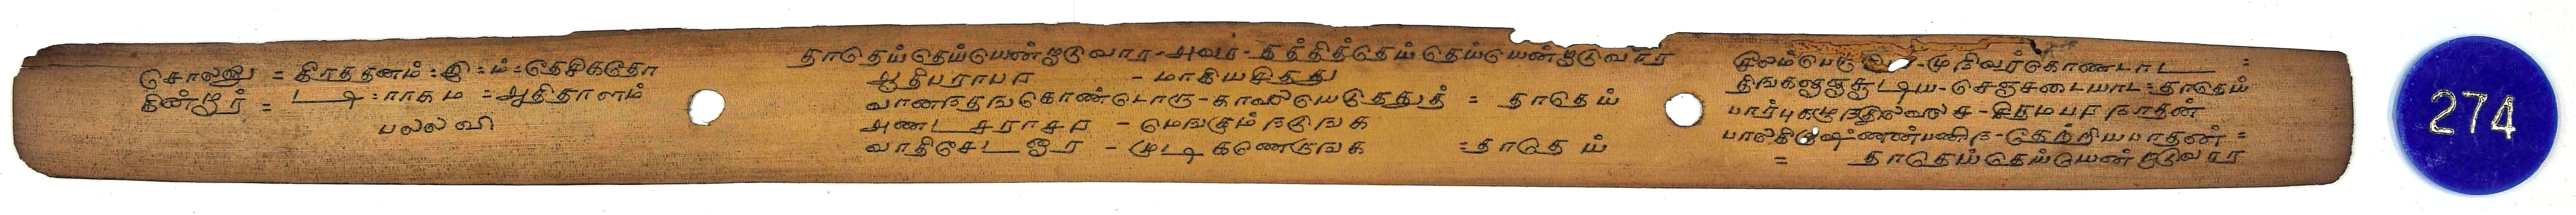 சொலலு = கீரத்தனம் : இ : ம் = தேசிகதோ
கின்றார் = டி : ராகம = ஆதிதாளம்
பலலவி
தாதெய்தெய்யென்றாடுவார - அவர் - தத்தித்தெய்தெய்யென்றாடுவார
ஆதிபராபர - மாகியசித்து
வானந்தங்கொண்டொரு - காலையெடுத்துத் = தாதெய்
அண்ட சராசர - மெங்கும் நடுங்க
வாதிசேட னார - முடி கணெருங்க = தாதெய்
முநிவர்கொண்டாட =
திங்களுஞ்சூடிய - செஞ்சடையாட = தாதெய்
பார்புகழுந்தில்லை - சிதம்பர நாதன்
பாலகிருஷ்ணன்பணித - கேற்றியபாதன் =
= தாதெய்தெய்யென்றாடுவாரர
274